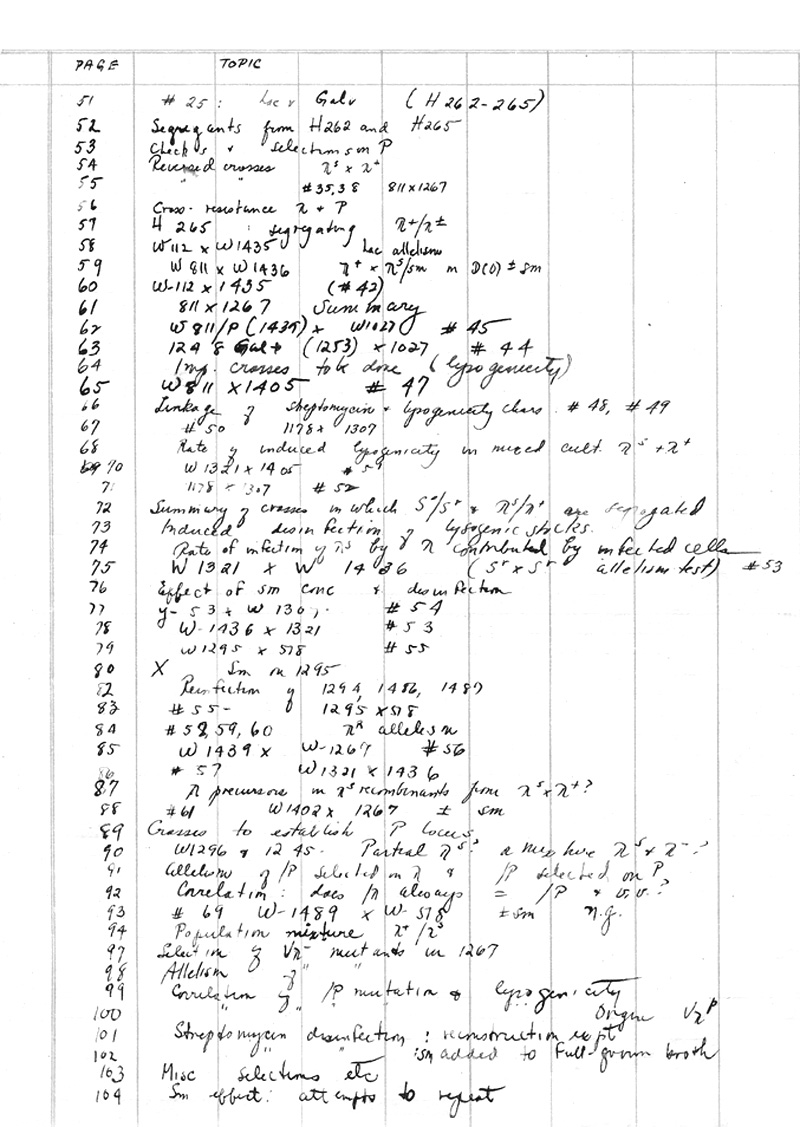 PAGE TOPIC
51 # 25: Lac v Galv (H262-265)
52 Segregants from H262 and H265
53 Checks & selections on P
54 Reversed crosses λs x λ+
55 " " #35,38 811x1267
56 Cross-resistance λ + P
57 H 265 : segregating λ+/λ±
58 W112 x W1435 Lac allelism
59 W811 x W1436 λ+ x λs/sm in D(0) ± sm
60 W-112 x 1435 (#42)
61 811 x 1267 Summary
62 W811/P (1434) x W1027 # 45
63 1248 Gal+ (1253) x 1027 # 44
64 Imp. crosses to be done (lysogenicity)
65 W811 x 1405 # 47
66 Linkage of streptomycin & lysogenicity chars. #48, #49
67 #50 1178 x 1307
68 Rate of induced lysogenicity in mixed cult. λs + λ+
70 W1321 x 1405 #59
71 1178 x 1307 #52
72 Summary of crosses in which Ss/Sr & λs/λ+ are segregated
73 Induced disinfection of lysogenic stocks.
74 Rate of infection of λs by λ contributed by infected cells
75 W1321 x W 1436 (Sr x Sr allelism test) #53
76 Effect of sm conc & disinfection
77 y-53 x W 1307. # 54
78 W-1436 x 1321 # 53
79 W1295 x 578 # 55
80 X Sm on 1295
82 Reinfection of 1294, 1486, 1487
83 #55- 1295 x 578
84 #58,59,60 λR allelism
85 W1439 x W-1267 #56
86 # 57 W1321 x 1436
87 λ precursors in λs recombinants from λs x λ+?
88 #61 W1402 x 1267 ± sm
89 Crosses to establish P locus
90 W1296 & 1245. Partial λs? a mixture λs & λ-?
91 Allelism of /P selected on λ & /P selected on P
92 Correlation: does /λ always = /P & v.v.?
93 # 69 W-1489 x W-578 ±sm n.g.
94 Population mixture λ+/λs
97 Selection of Vλ- mutants in 1267
98 Allelism of " "
99 Correlation of /P mutation & lysogenicity
100 " " " Origin VλP
101 Streptomycin disinfection : reconstruction expt
102 " " : sm added to full-grown broth
103 Misc selections etc
104 Sm effect: attempts to repeat